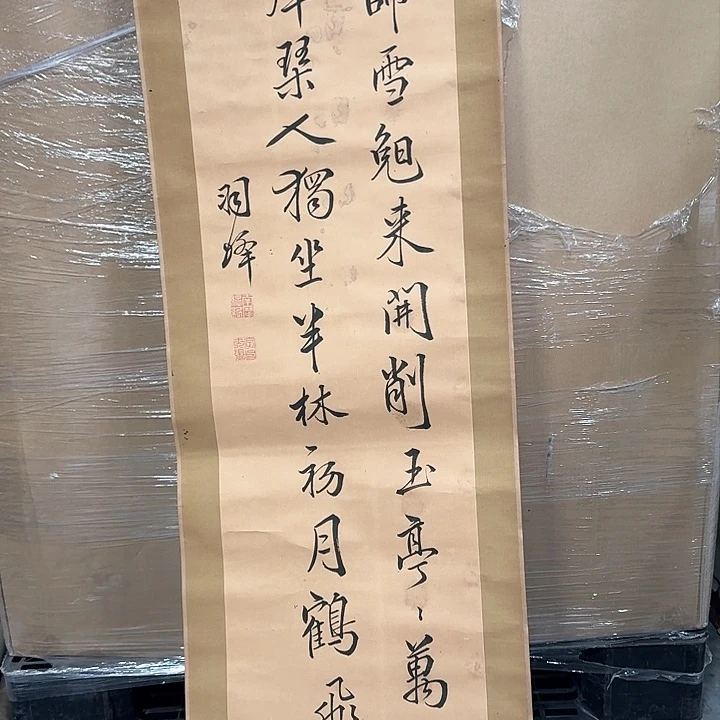 雪来開削玉亭々萬
琴人獨坐半林初月鶴飛
羽峰